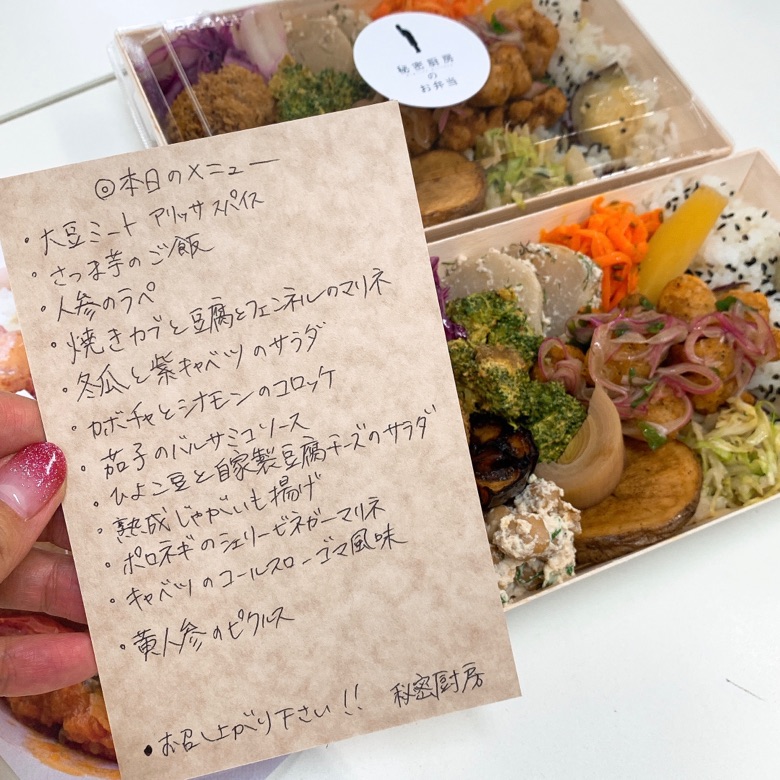 秘密厨房
の
お弁当
◎本日のメニュー
・大豆ミート アリッサスパイス
・さつま芋のご飯
・人参のラペ
・焼きカブと豆腐とフェンネルのマリネ
・冬瓜と紫キャベツのサラダ
・カボチャとシナモンのコロッケ
・茄子のバルサミコソース
・ひよこ豆と自家製豆腐チーズのサラダ
・熟成じゃがいも揚げ
・ポロネギのシェリービネガーマリネ
・キャベツのコールスローゴマ風味
・黄人参のピクルス
・お召し上がり下さい!! 秘密厨房